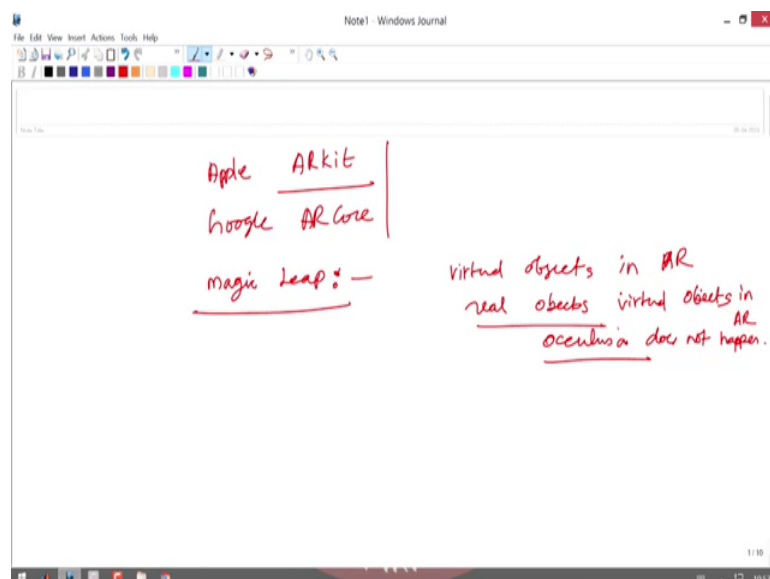 Note1 - Windows Journal
File Edit View Insert Actions Tools Help
Note Title
Apple ARkit
Google ARCore
magic Leap :-
virtual objects in AR
real obects virtual objects in
AR
occulusion does not happen.
1 / 10